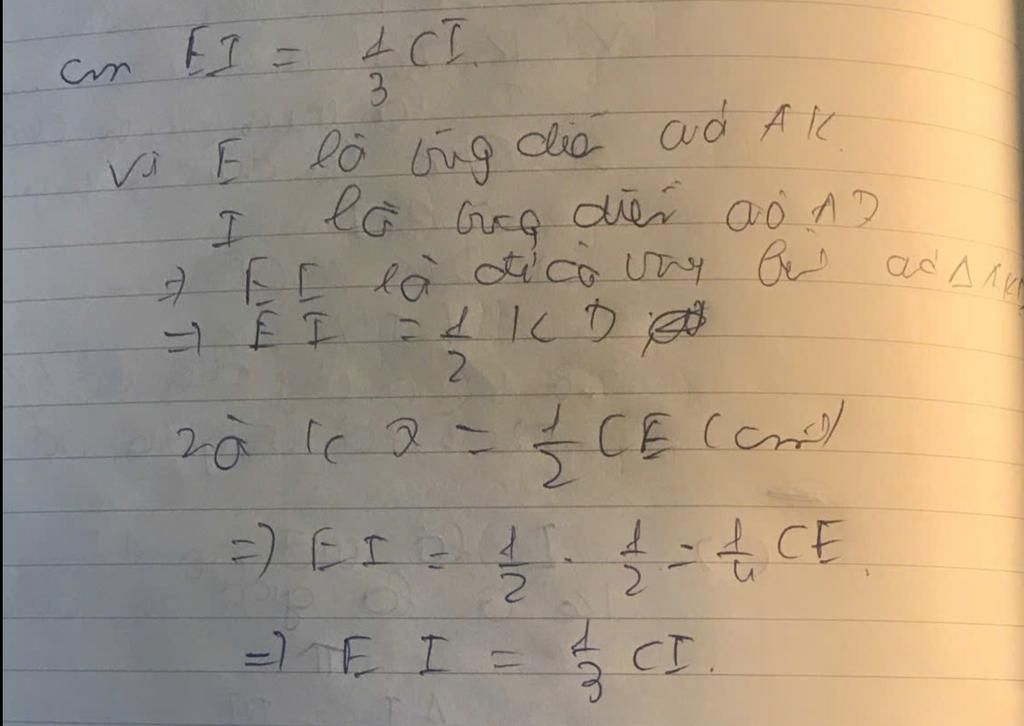 cm EI = 1/3 CI.
Vì E là trung điểm của AK.
I là trung điểm của AD
=> EI là đường trung bình của △AKD
=> EI = 1/2 KD
mà KD = 1/2 CE (cmt)
=> EI = 1/2 . 1/2 = 1/4 CE.
=> EI = 1/3 CI.